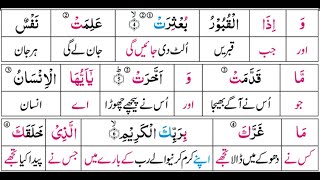 وَ اِذَا الْقُبُوْرُ بُعْثِرَتْ ۙ﴿۴﴾ عَلِمَتْ نَفْسٌ
اور جب قبریں الٹ دی جائیں گی جان لے گی ہر جان
مَّا قَدَّمَتْ وَ اَخَّرَتْ ؕ﴿۵﴾ یٰۤاَیُّهَا الْاِنْسَانُ
جو اُس نے آگے بھیجا اور اُس نے پیچھے چھوڑا اے انسان
مَا غَرَّكَ بِرَبِّكَ الْكَرِیْمِ ۙ﴿۶﴾ الَّذِیْ خَلَقَكَ
کس نے دھوکے میں ڈالا تجھے اپنے کرم کرنیوالے رب کے بارے میں جس نے پیدا کیا تجھے